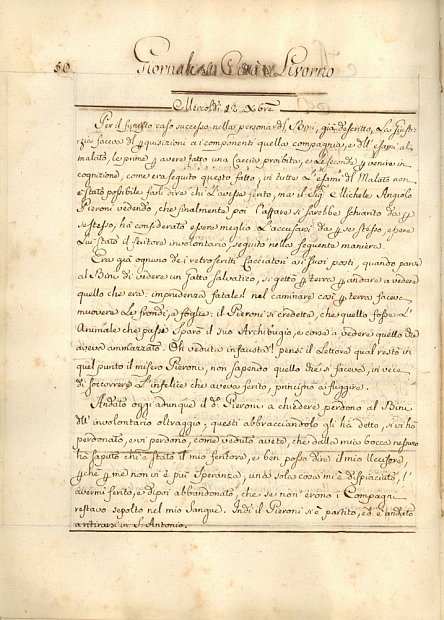 50. Giornale di Livorno
Mercoldì 12 Xbre
Per il funesto caso successo nella persona del Bini, già descritto, La Giusti-
zia faceva di perquisizioni a i componenti quella compagnia, e dll' esami al
malato, le prime per avere fatto una Caccia proibita, e le seconde per venire in
cognizione, come era seguito questo fatto, in tutte L'esami dl Malato non
è stato possibile farli dire chi L'avesse ferito, ma il Sig. Michele Angiolo
Pieroni vedendo, che finalmente poi L'affare si sarebbe schiarito da per
se stesso, hà considerato essere meglio L'accusarsi da per se stesso, essere
Lui stato il feritore involontario, seguito nella seguente maniera.
Era già ognuno dei retroscritti Cacciatori a i suoi posti, quando parve
al Bini di vedere un Gatto salvatico, si gettò per terra per andare a vedere
quello che era: imprudenza fatale! nel caminare così per terra faceva
muovere Le frondi, e foglie; il Pieroni si credette, che quello fosse L'
Animale che passi Sparò il suo Archibugio, e corse a vedere quello che
aveva ammazzato. Oh veduta infausta! pensi il Lettore qual restò in
qual punto il misero Pieroni, non sapendo quello che si faceva, in vece
di soccorrere L'infelice che aveva ferito, principiò a fuggire.
Andato oggi adunque il do. Pieroni a chiedere perdono al Bini
dll' involontario oltraggio; questi abbracciandolo gli hà detto, si vi ho
perdonato, e vi perdono, come veduto avete, che dalla mia bocca nessuno
hà saputo chi è stato il mio feritore, e ben posso dire il mio Uccisore,
perche per me non vi è più Speranza, una sola cosa mi è dispiaciuta, l'
avermi ferito, e di poi abbandonato, che se non' erono i Compagni
restavo sepolto nel mio Sangue. Indi il Pieroni si è partito, ed è andato
a ritirarsi in S. Antonio.